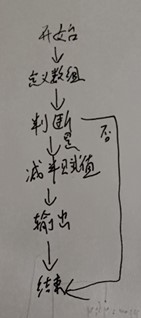 开始
定义数组
判断
否
是
减半赋值
输出
结束